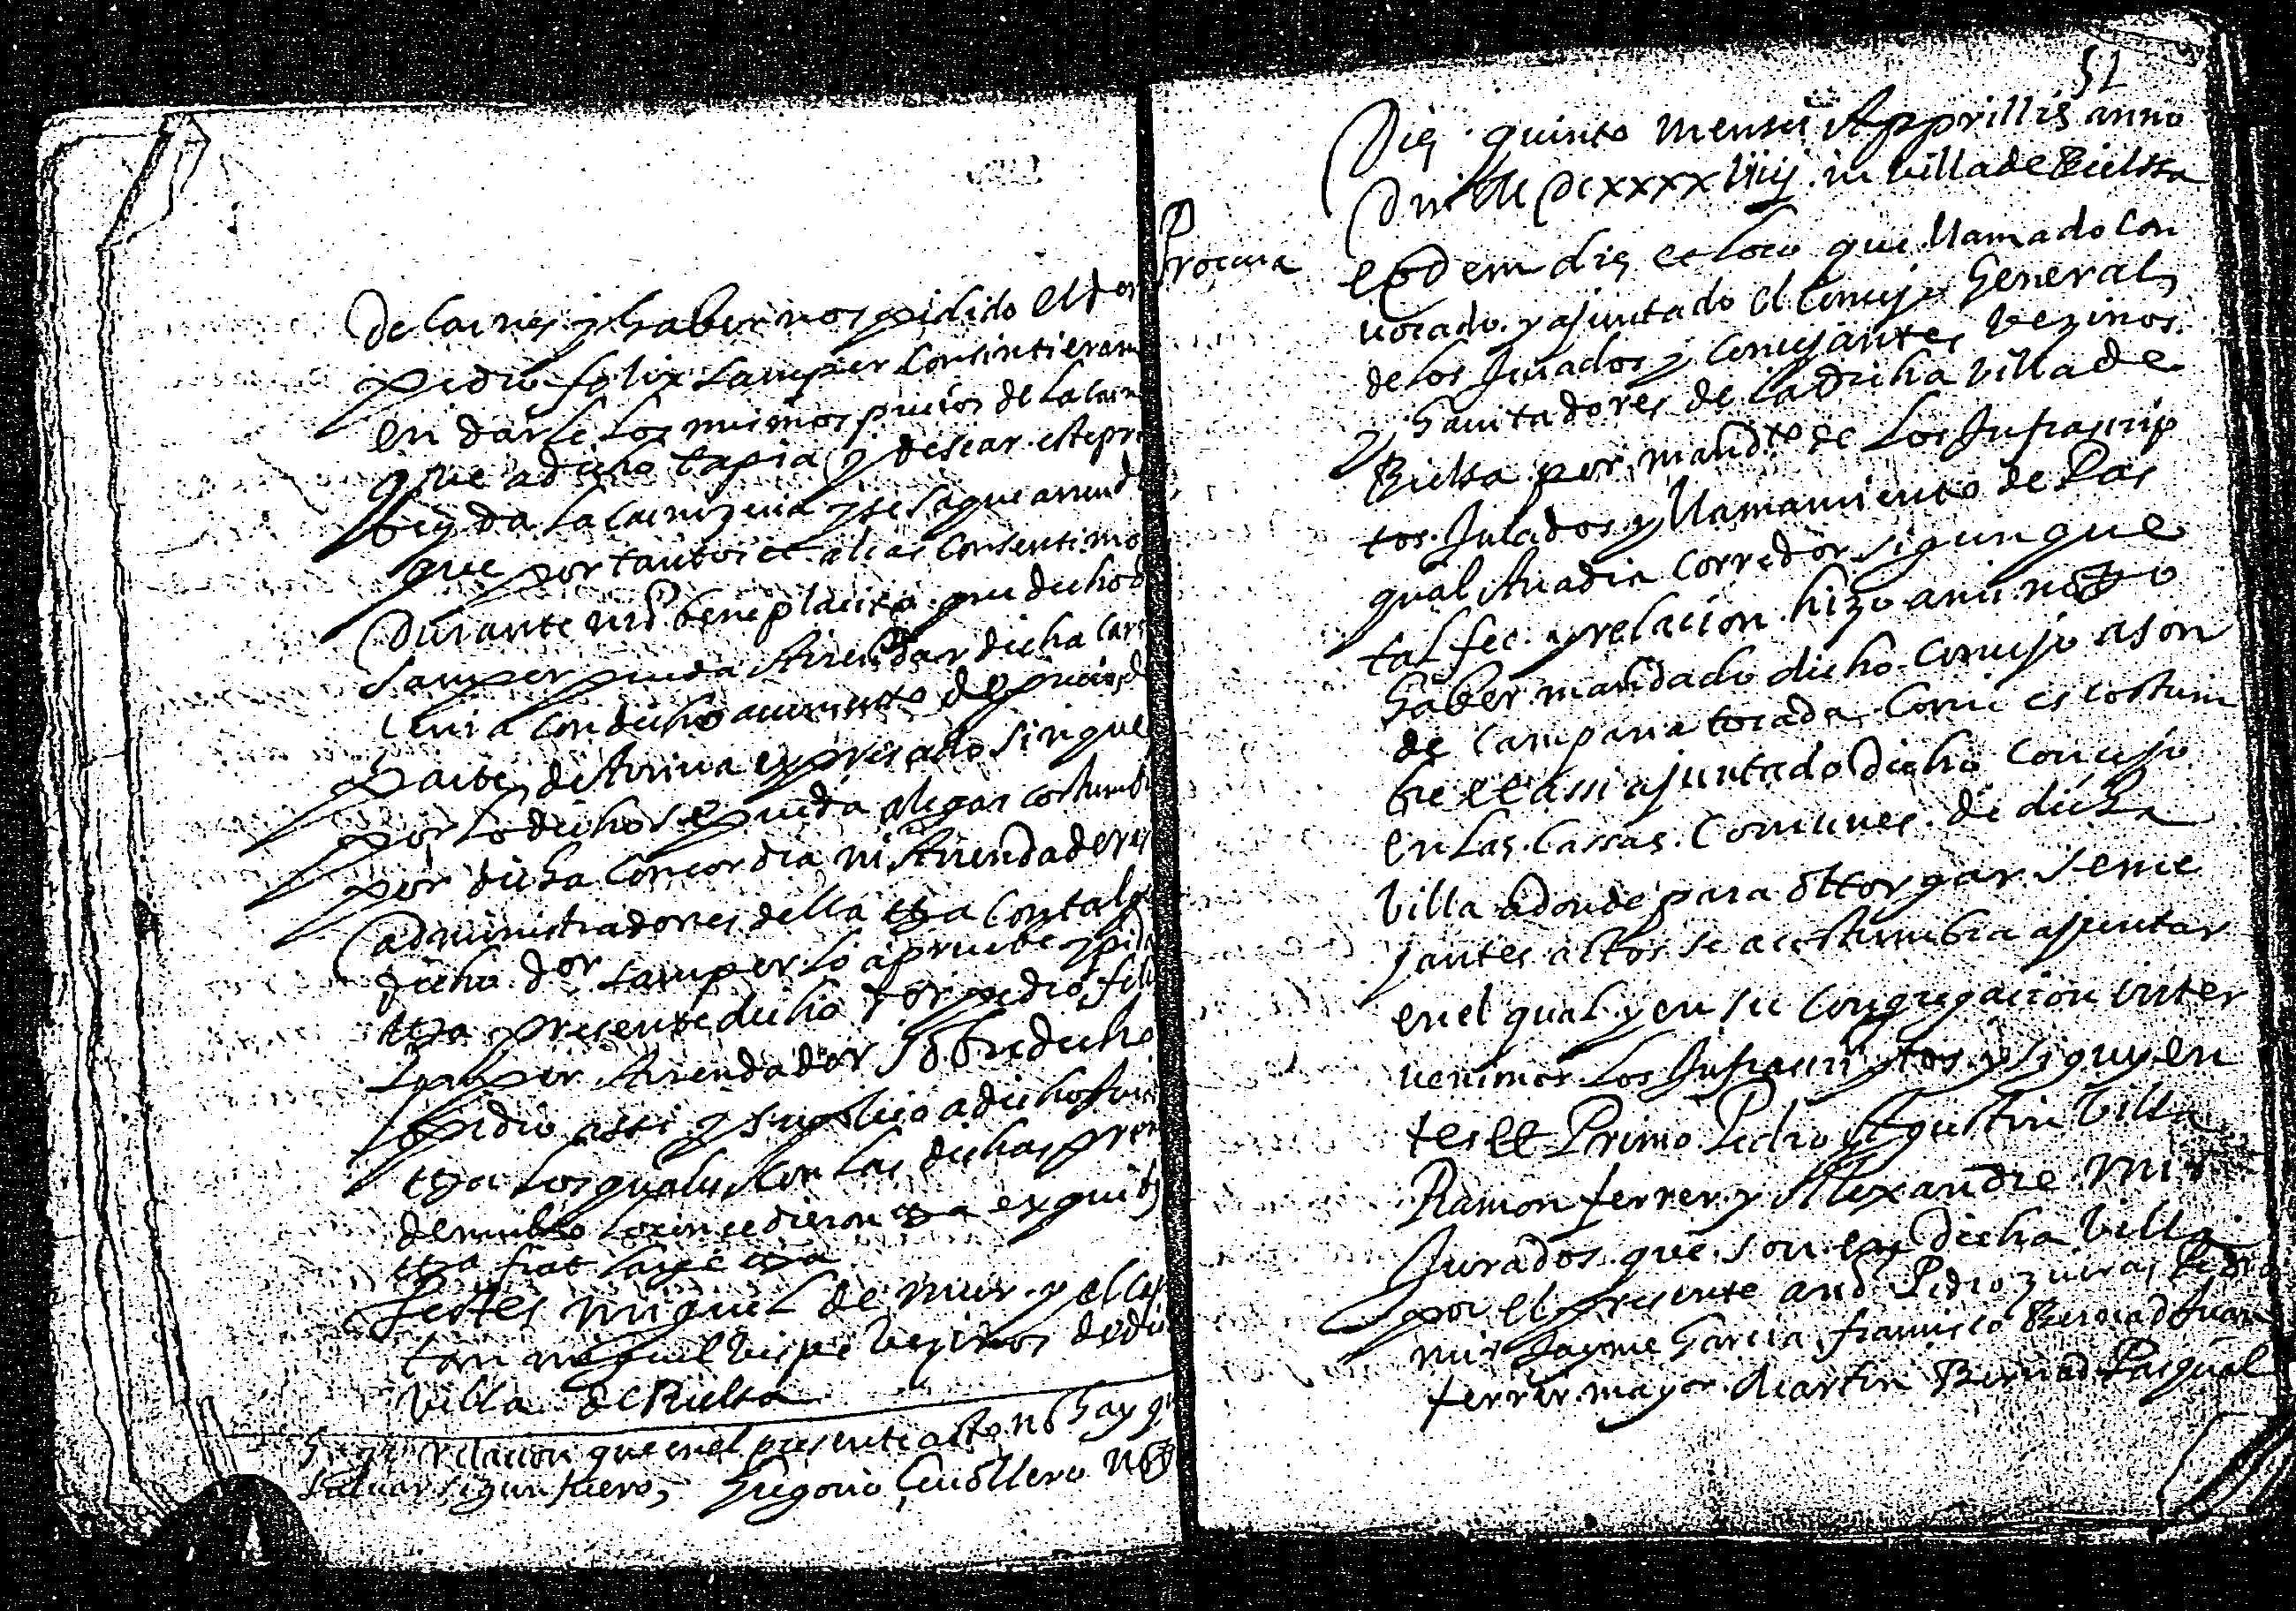 de carnes y haber nos pidido el dor
pedro felix samper consintieram
en darle los mismos precios de la carn
que a dicho tapia y desear este pro
beyda la carnizeria y se saque arrend
que por tanto et alias consentimo
durante nro beneplacito pue dicho d
samper pueda Arrendar dicha car
ceria con dicho aumento de precio, d
parte de Arriua expresado sin que
por lo dicho se pueda alegar costumb
por dicha Concordia ni Arrendadores
administradores della etta Con tal q
dicho dor samper lo apruebe y pida
etta presente dicho dor pedro feli
samper Arrendador sobredicho
pidio assi y suplico a dichos Jur
etta los quales con las dichas pro
etta fiat large etta
Testes miguel de mur y el cap
tan miguel bispe bezinos de di
villa de Bielsa
relacion que en el presente acto no hay q
saluar segun fuero, Gregorio
51
Die quinto mensis Apprillis anno
Dni M DCXXXXVIIIJ in villa de Bielssa
Procura
eodem die et loco que llamado con
uocado y ajuntado el Concejo General
de los Jurados y Concejantes bezinos
y hauitadores de la dicha villa de
Bielsa por mandto de los Infrascrip
tos Jurados y llamamiento de Pas
qual Anadia Corredor sigun que
tal fee y relacion hizo a mi notto
haber mandado dicho Concejo a son
de Campana tocada Como es costum
bre et assi ajuntado dicho Concejo
en las Cassas Comunes de dicha
villa adonde para ottorgar seme
jantes actos se acostumbra ajuntar
en el qual y en su Congregacion inter
uenimos los Infrascriptos y siguyen
tes et Primo Pedro Agustin Villa
Ramon ferrer y Alexandre mir
Jurados que son en dicha villa
por el presente año Pedro zueras Pedro
mir Jayme Garcia francisco Bernad Juan
ferrer mayor Martin Bernad Pasqual